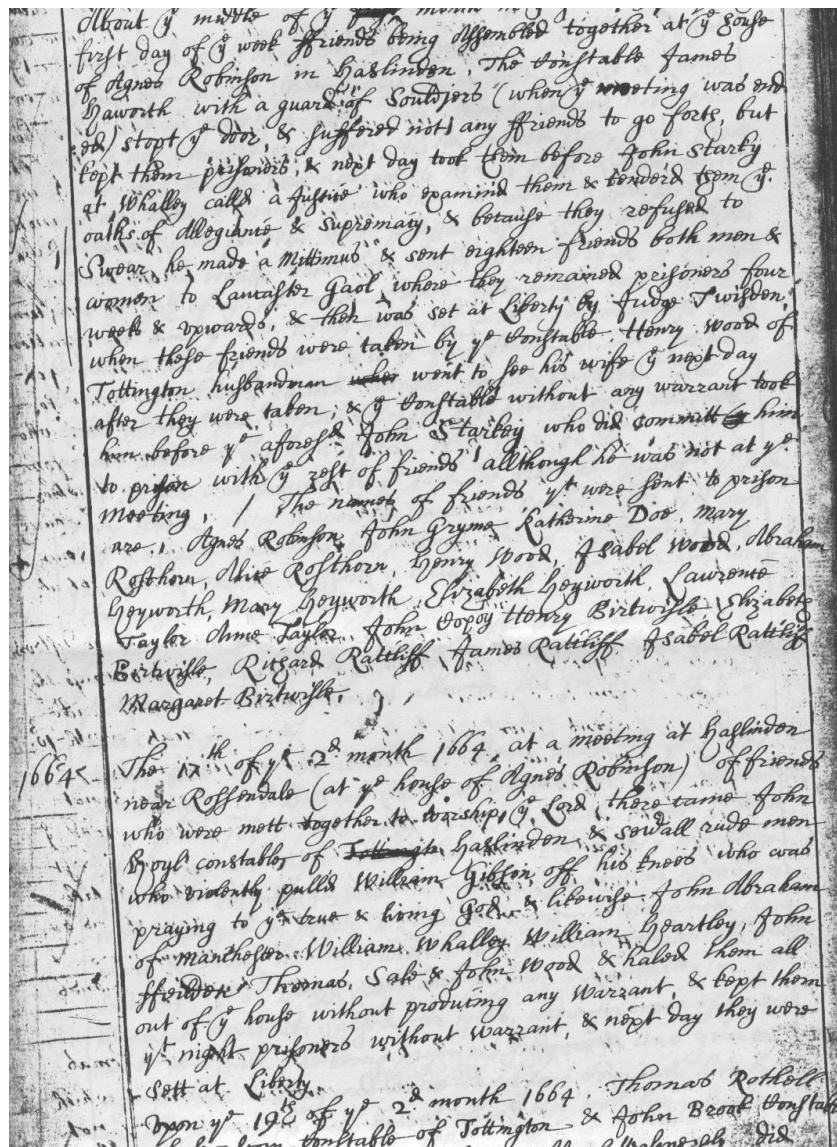 About yᵉ middle of yᵉ month
first day of yᵉ week ffriends being Assembled together at yᵉ house
of Agnes Robinson in Haslinden, The Constable James
Haworth with a guard of Souldjers (when yᵉ meeting was end
ed) stopt yᵉ door, & suffered not any ffriends to go forth, but
kept them prisoners, & next day took them before John Starky
at Whalley calld a Justice who examind them & tenderd them yᵉ
oaths of Allegiance & Supremacy, & because they refused to
Swear, he made a Mittimus & sent eighteen friends both men &
women to Lancaster Gaol where they remained prisoners four
weeks & upwards, & then was set at Liberty by Judge Twisden,
when these friends were taken by yᵉ Constable, Henry Wood of
Tottington husbandman went to see his wife yᵉ next day
after they were taken, & yᵉ Constable without any warrant took
him before yᵉ aforesᵈ John Starkey who did committ him
to prison with yᵉ rest of friends allthough he was not at yᵉ
Meeting, / The names of friends yᵗ were sent to prison
are, Agnes Robinson, John Gryme Katherine Doe, Mary
Rosthorn, Alice Rosthorn, Henry Wood, Isabel Wood, Abraham
Heyworth, Mary Heyworth, Elizabeth Heyworth, Lawrence
Taylor Anne Taylor, John Henry Birtwisle Elizabeth
Birtwisle, Richard Rattliff James Rattliff Isabel Rattliff
Margaret Birtwisle,
1664 The 17th of yᵉ 2ᵈ month 1664, at a meeting at Haslinden
near Rossendale (at yᵉ house of Agnes Robinson) of friends
who were mett together to worship yᵉ Lord, there came John
Hoyl constable of Haslinden, & sevall rude men
who violently pulld William Gibson off his knees who was
praying to yᵉ true & living God, & likewise John Abraham
of Manchester William Whalley William Heartley, John
ffeilden Thomas Sale & John Wood & haled them all
out of yᵉ house without producing any Warrant, & kept them
yᵗ night prisoners without Warrant, & next day they were
Sett at Liberty
Upon yᵉ 19th of yᵉ 2ᵈ month 1664, Thomas Rothell
constable of Tottington & John Brook Constable
did